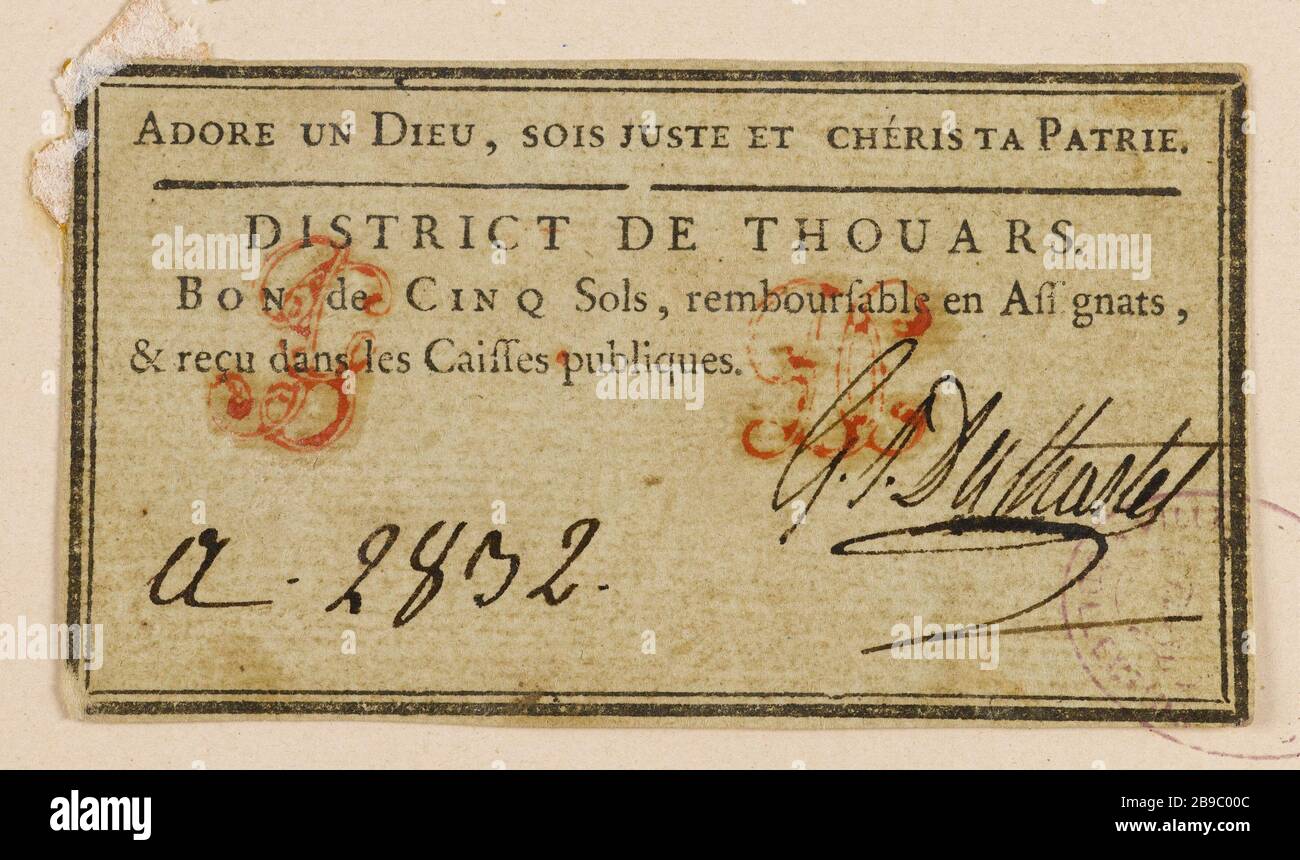 ADORE UN DIEU, SOIS JUSTE ET CHÉRIS TA PATRIE.
DISTRICT DE THOUARS.
BON de CINQ Sols, rembourſable en Aſſignats,
& reçu dans les Caiſſes publiques.
a. 2832.
alamy
Image ID: 2B9C00C
www.alamy.com